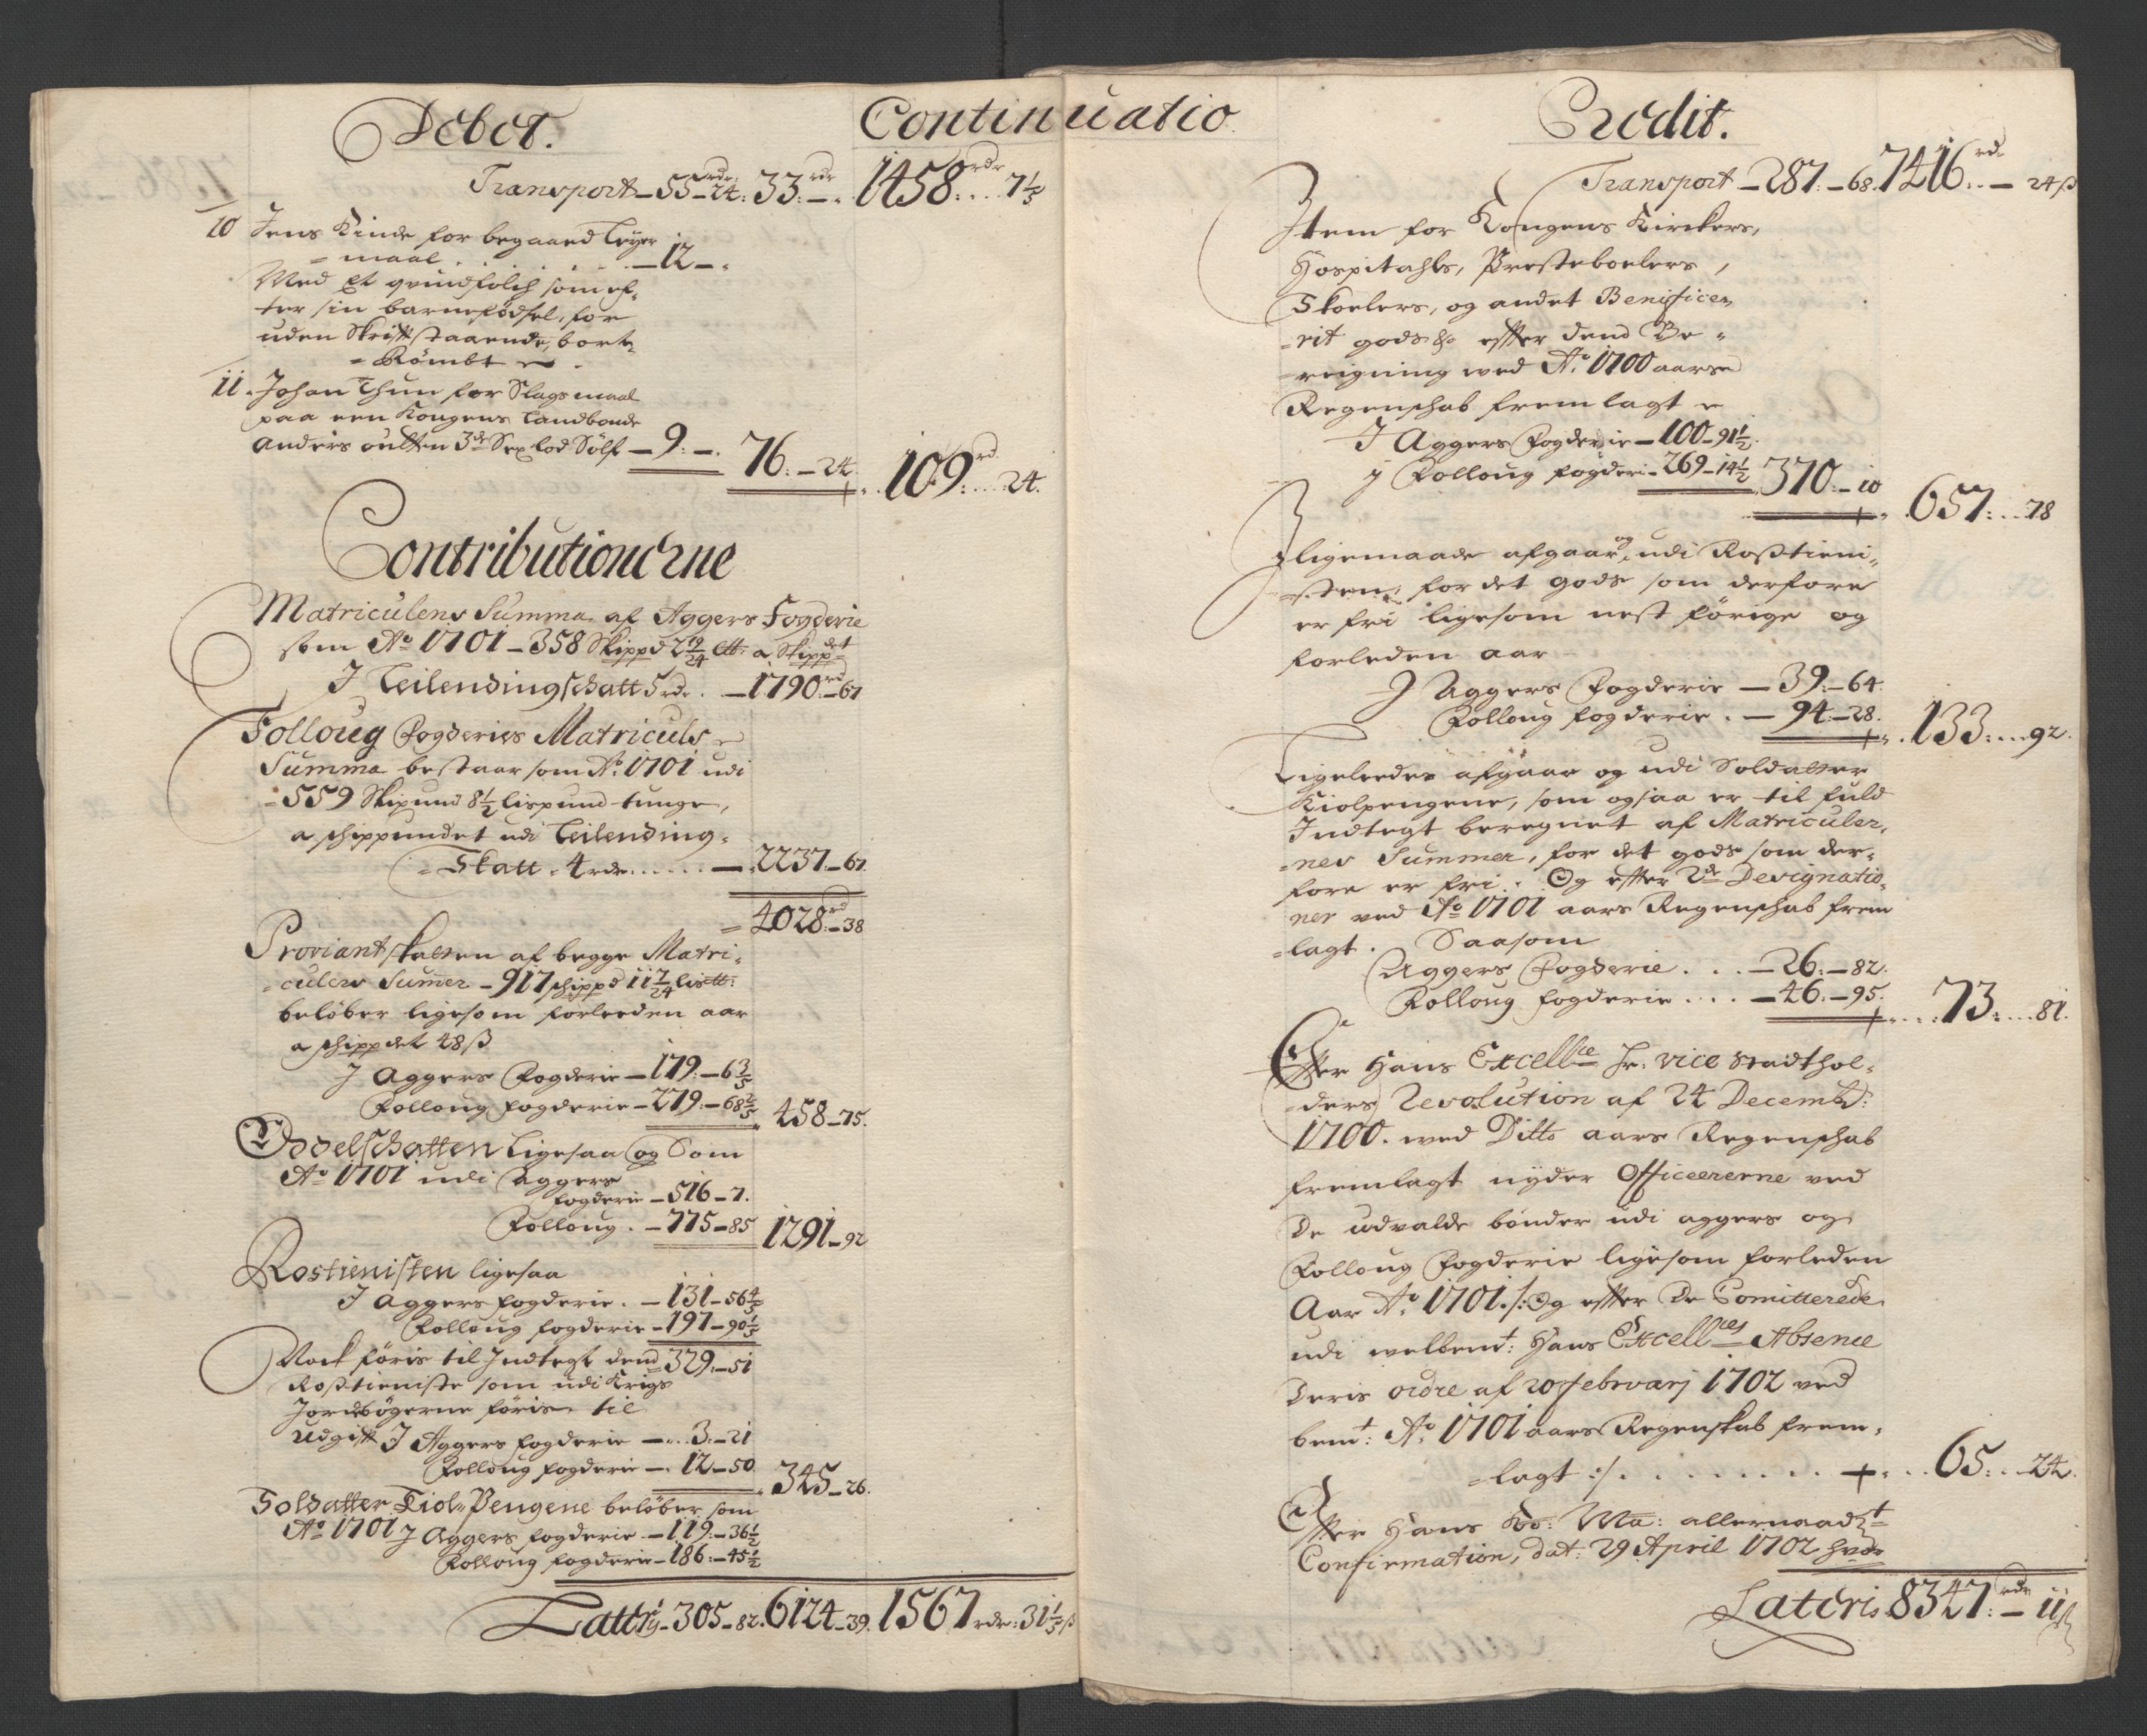 Debet.
Continuatio
Transport – 55 rdr – 24: 33 rdr – . 1458 rdr: . . 7 1/5
10 Jens Kinde for begaaed Leyer
= maal . . . . . . – 12 – .
Med Et qvindfolch som ef-
ter sin barnefødsel, for
uden Skriftstaaende, bort-
= Römbt er .
11 . Johan Thun for Slagsmaal
paa een Kongens Landbonde
Anders 3de Sex lod Sölf – 9: – . 76: – 24. 109 rd: . . . 24.
Contributionerne
Matriculens Summa af Aggers Fogderie
som Ao 1701 – 358 Skippd 2 19/24 ℔: a Skippdet
J Leilendingschatt 5 rdr . – 1790 rd – 67
Folloug Fogderies Matriculs
Summa bestaar som Ao 1701 udi
= 559 Skipund 8 1/2 lispund tunge,
a schippundet udi Leilending=
= Skatt . 4 rdr . . . . . . – 2237 – 67.
= 4028 rd – 38
Proviantskatten af begge Matri-
= culers Sumer – 917 schippd 11 7/24 lis℔:
beløber ligesom forleeden aar
a schippdet 48 ß
J Aggers Fogderie – 179: – 6 3/5
Folloug fogderie – 279: – 68 2/5 . 458 – 75.
Oddelschatten Ligesaa og Som
Ao 1701 udi Aggers
fogderie – 516 – 7.
Folloug . – 775 – 85 1291 – 92
Rostienisten ligesaa
J Aggers fogderie . – 131 – 56 4/5
Folloug fogderie – 197 – 90 1/5
Noch föris til Indtegt dend = 329: – 51
Roßtieniste som udi Krigs
Jordebögerne föris til
Udgift J Aggers fogderie – . . 3: – 21
Folloug fogderie – . 12 – 50. 345 – 26.
Soldatter Kiol-Pengene beløber som
Ao 1701 J Aggers fogderie – 119: – 36 1/2
Folloug fogderie – 186: – 45 1/2
Latteris – 305 – 82. 6124 – 39. 1567 rdr: 31 1/5 ß
Credit.
Transport – 287. – 68. 7416 rdr . – 24 ß
Item for Kongens Kirckers,
Hospitahls, Presteboelers,
Skoelers, og andet Benificer
= rit gods &c efter dend Be =
= reigning wed Ao 1700 aars
Regenschab fremlagt er
J Aggers Fogderie – 100 – 91 1/2.
J Folloug fogderi – 269 – 14 1/2 370: – 10 . 657: . . 78
J ligemaade afgaar og udi Roßtieni-
= sten, for det gods som derfore
er fri ligesom nest förige og
forleden aar
J Aggers Fogderie – 39: – 64.
Folloug fogderie . – 94: – 28. . 133: . . . 92.
Ligeleedes afgaar og udi Soldatter
Kiolpengene, som ogsaa er til fuld
Indtegt beregnet af Matriculer,
= nes Summer, for det gods som der=
fore er fri . Og efter 2de Designatio-
ner ved Ao 1701 aars Regenschab frem
= lagt . Saasom
Aggers Fogderie . . . – 26: – 82.
Folloug fogderie . . . . – 46: – 95. . . . 73: . . . 81.
Efter Hans Excellce Hr: Vice Stadthol=
= ders Resolution af 24 Decembd:
1700. wed Ditto aars Regenschab
fremlagt nyder Officeererne ved
De udvalde bønder udi aggers og
Folloug Fogderie ligesom forleden
Aar Ao 1701 ./: Og efter De Comitterede
udi welbemt: Hans Excellces Absence
Deris ordre af 20 februarj 1702 ved
bemt: Ao 1701 aars Regenskab frem-
= lagt :/ . . . . . . . . . + . . . 65: . . 24.
Efter Hans Ko: Ma: allernaadst
Confirmation, dat: 29 April 1702 hvor
Lateris 8327: rdr – 11 ß